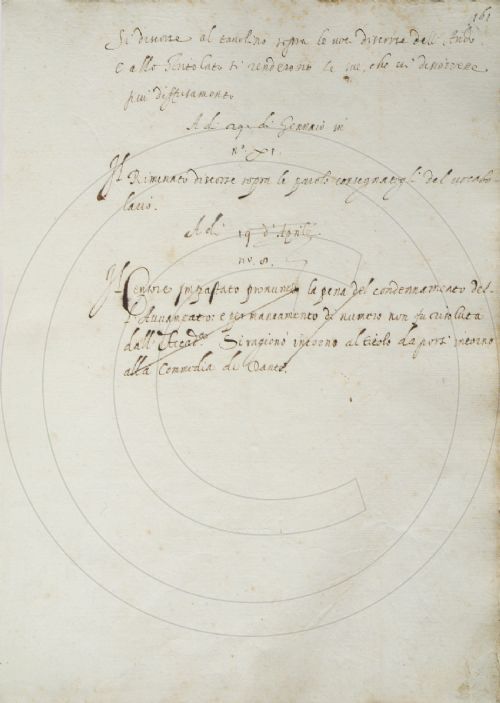 161
Si discorse al tavolino sopra le voci discorse dell'
E allo si renderono le sue, che vi discorresse
piu distesamente
A di 29 di Gennaio in
nº XI.
Il Rimenato discorse sopra le parole consegnategli del vocabo-
lario.
A di 19 d'Aprile.
nº. 8.
Il Censore Impastato pronunziò la pena del condennamento del-
l'Avvampato: e per mancamento di numero non fu risoluta
dall'Accad.ª Si ragionò intorno al titolo da porsi intorno
alla Commedia di Dante.